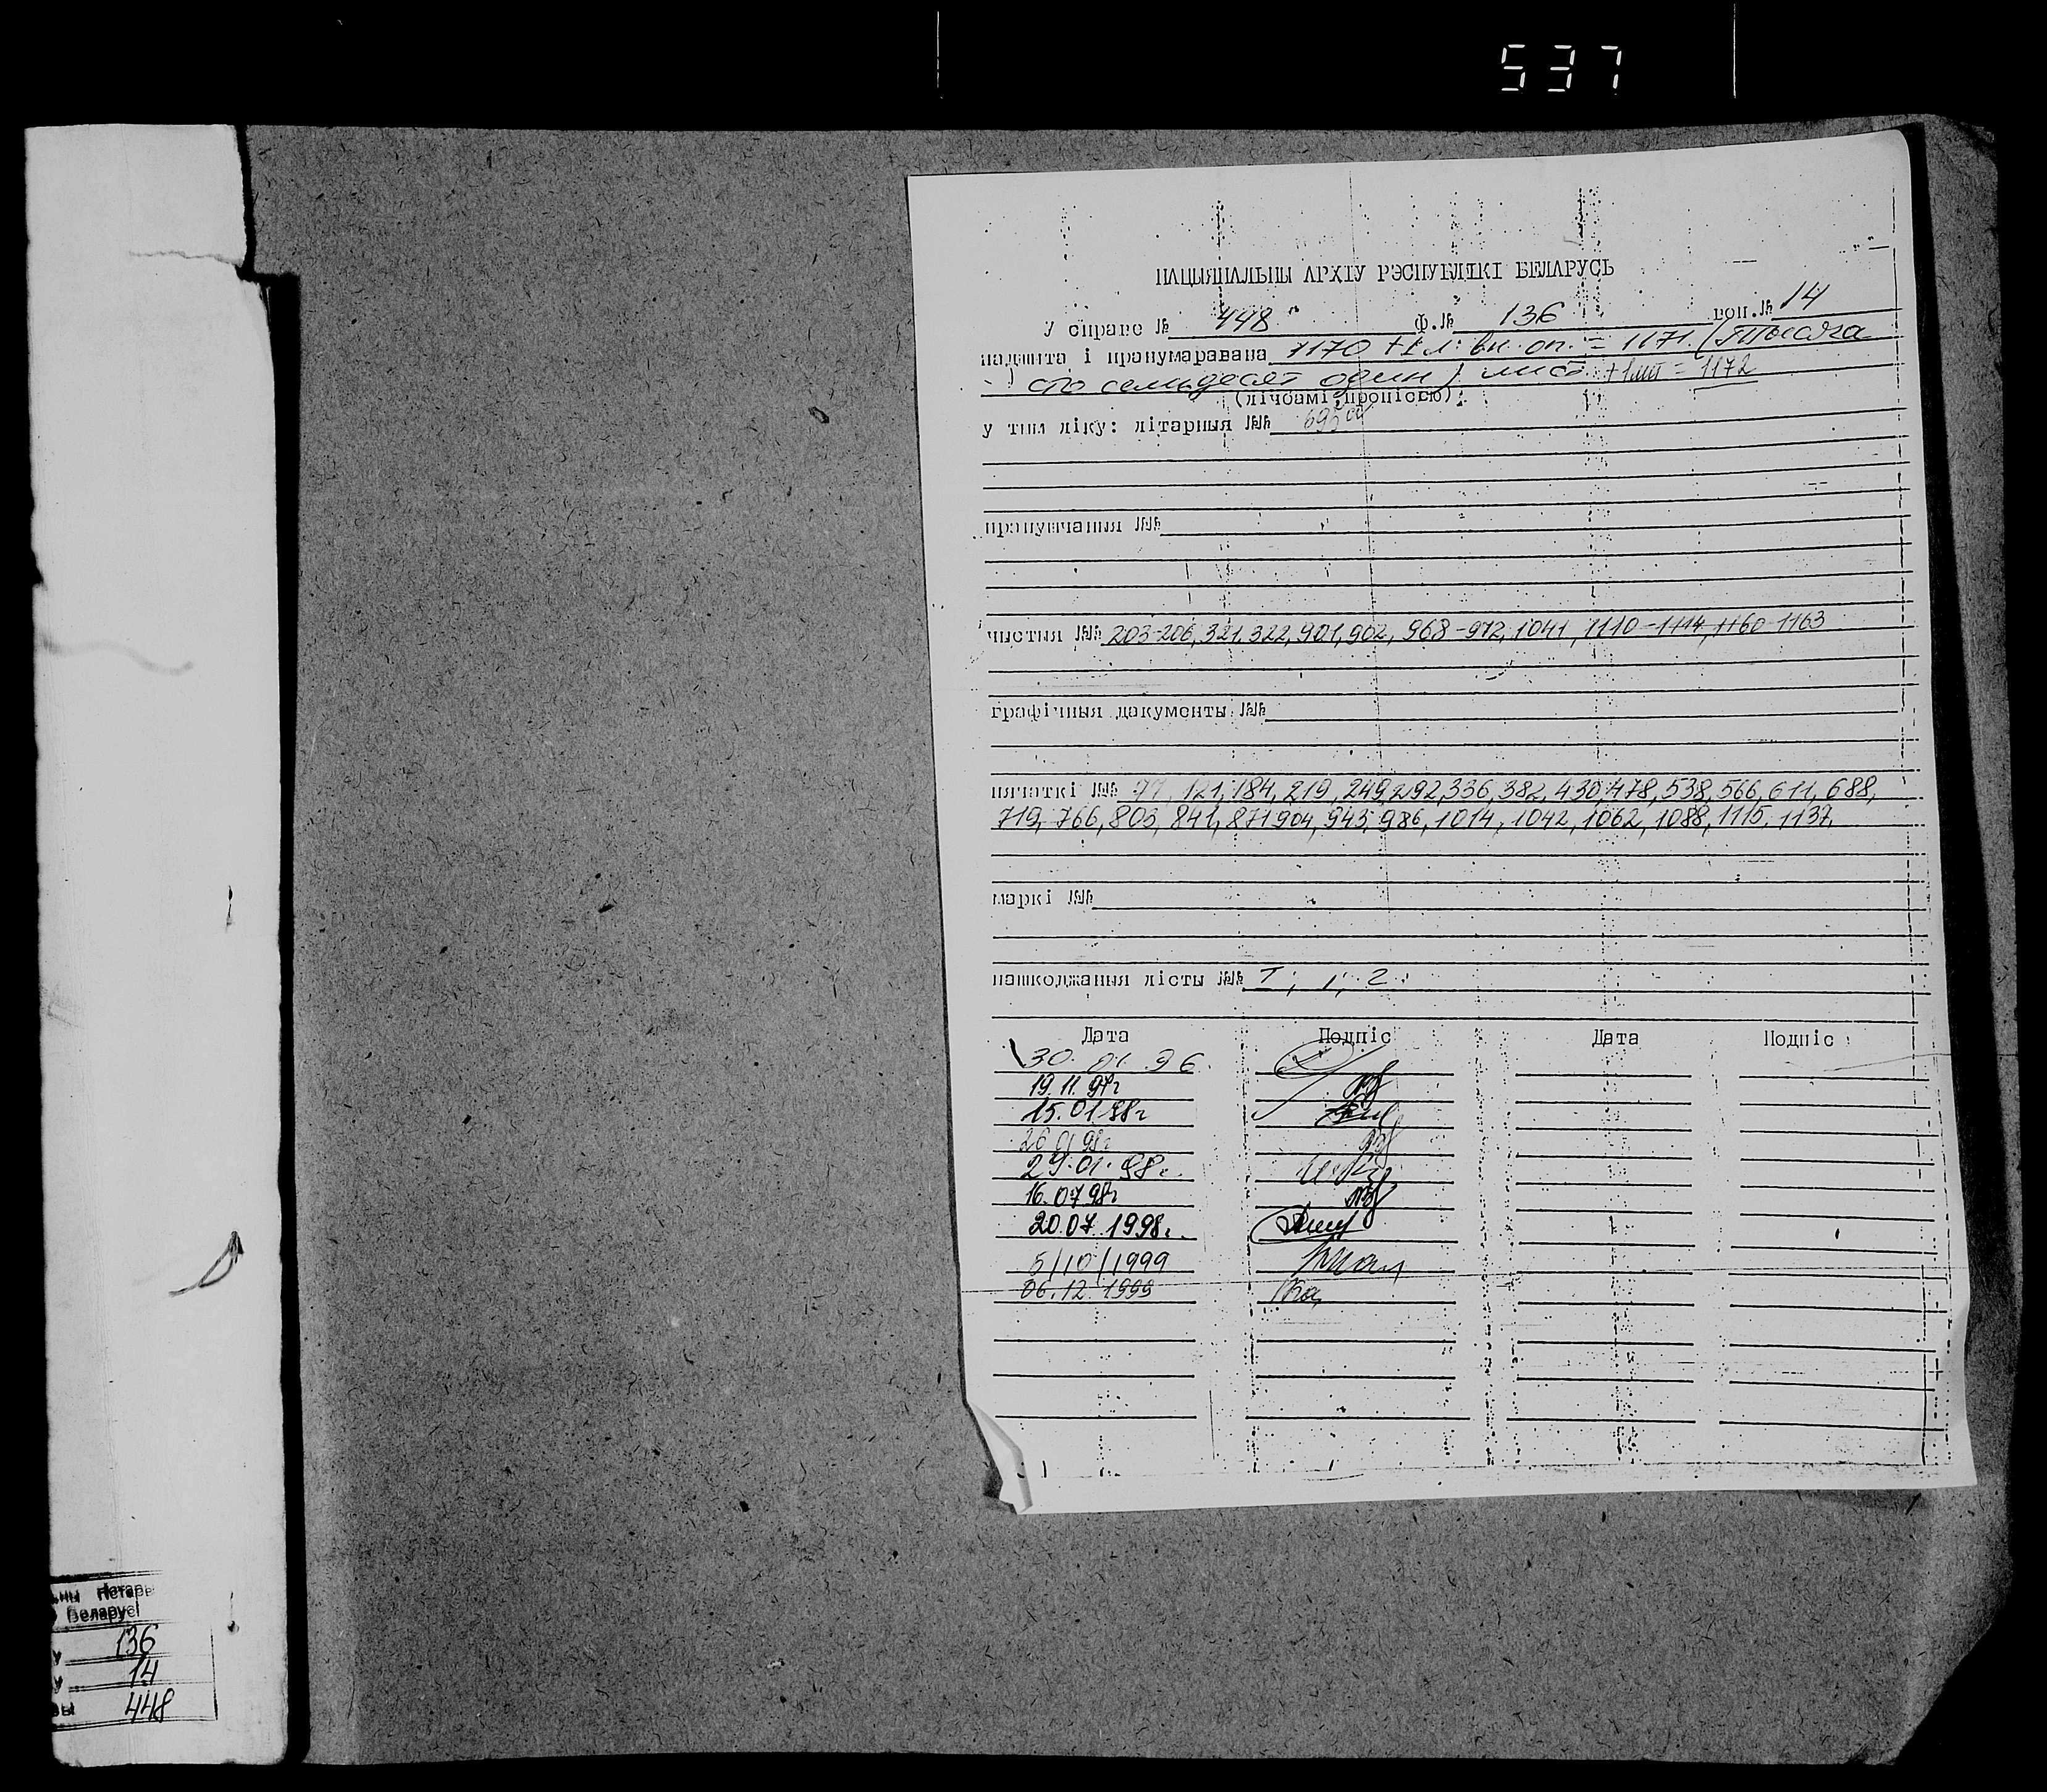 537
НАЦЫЯНАЛЬНЫ АРХІУ РЭСПУБЛІКІ БЕЛАРУСЬ
У справе № 448 Ф.№ 136 воп.№ 14
падшыта і пранумаравана 1170 + 1 л. вн. оп. = 1171 (тысяча
сто семьдесят один) лист + 1 лит = 1172
(лічбамі, пропіссю)
у тым ліку: літарныя №№ 695
прапушчаныя №№
чыстыя №№ 203-206, 321, 322, 901, 902, 968-972, 1041, 1110-1114, 1160-1163
графічныя дакументы №№
пячаткі №№ 77, 121, 184, 219, 249, 292, 336, 382, 430, 478, 538, 566, 611, 688,
719, 766, 805, 841, 871, 904, 945, 986, 1014, 1042, 1062, 1088, 1115, 1137,
маркі №№
пашкоджаныя лісты №№ I, 1, 2
Дата Подпіс Дата Подпіс
30.01.96.
19.11.97г
15.01.98г
26.01.98г
29.01.98г.
16.07.98г
20.07.1998г.
5/10/1999
06.12.1999
Беларусі
136
14
448